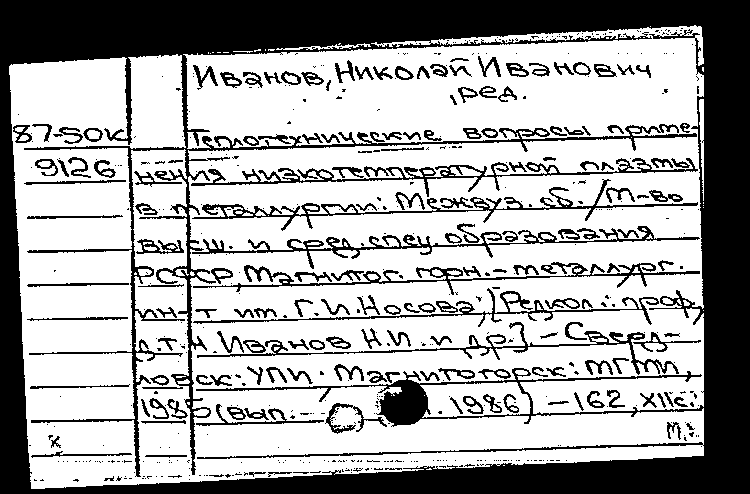 Иванов, Николай Иванович
, ред.
87-50к Теплотехнические вопросы приме-
9126 нения низкотемпературной плазмы
в металлургии: Межвуз. сб. / М-во
высш. и сред. спец. образования
РСФСР, Магнитог. горн.-металлург.
ин-т им. Г.И.Носова; [Редкол.: проф.,
д.т.н. Иванов Н.И. и др.] - Сверд-
ловск: УПИ. Магнитогорск: МГМИ,
1985 (вып. - . 1986) - 162, XIIс.:
к